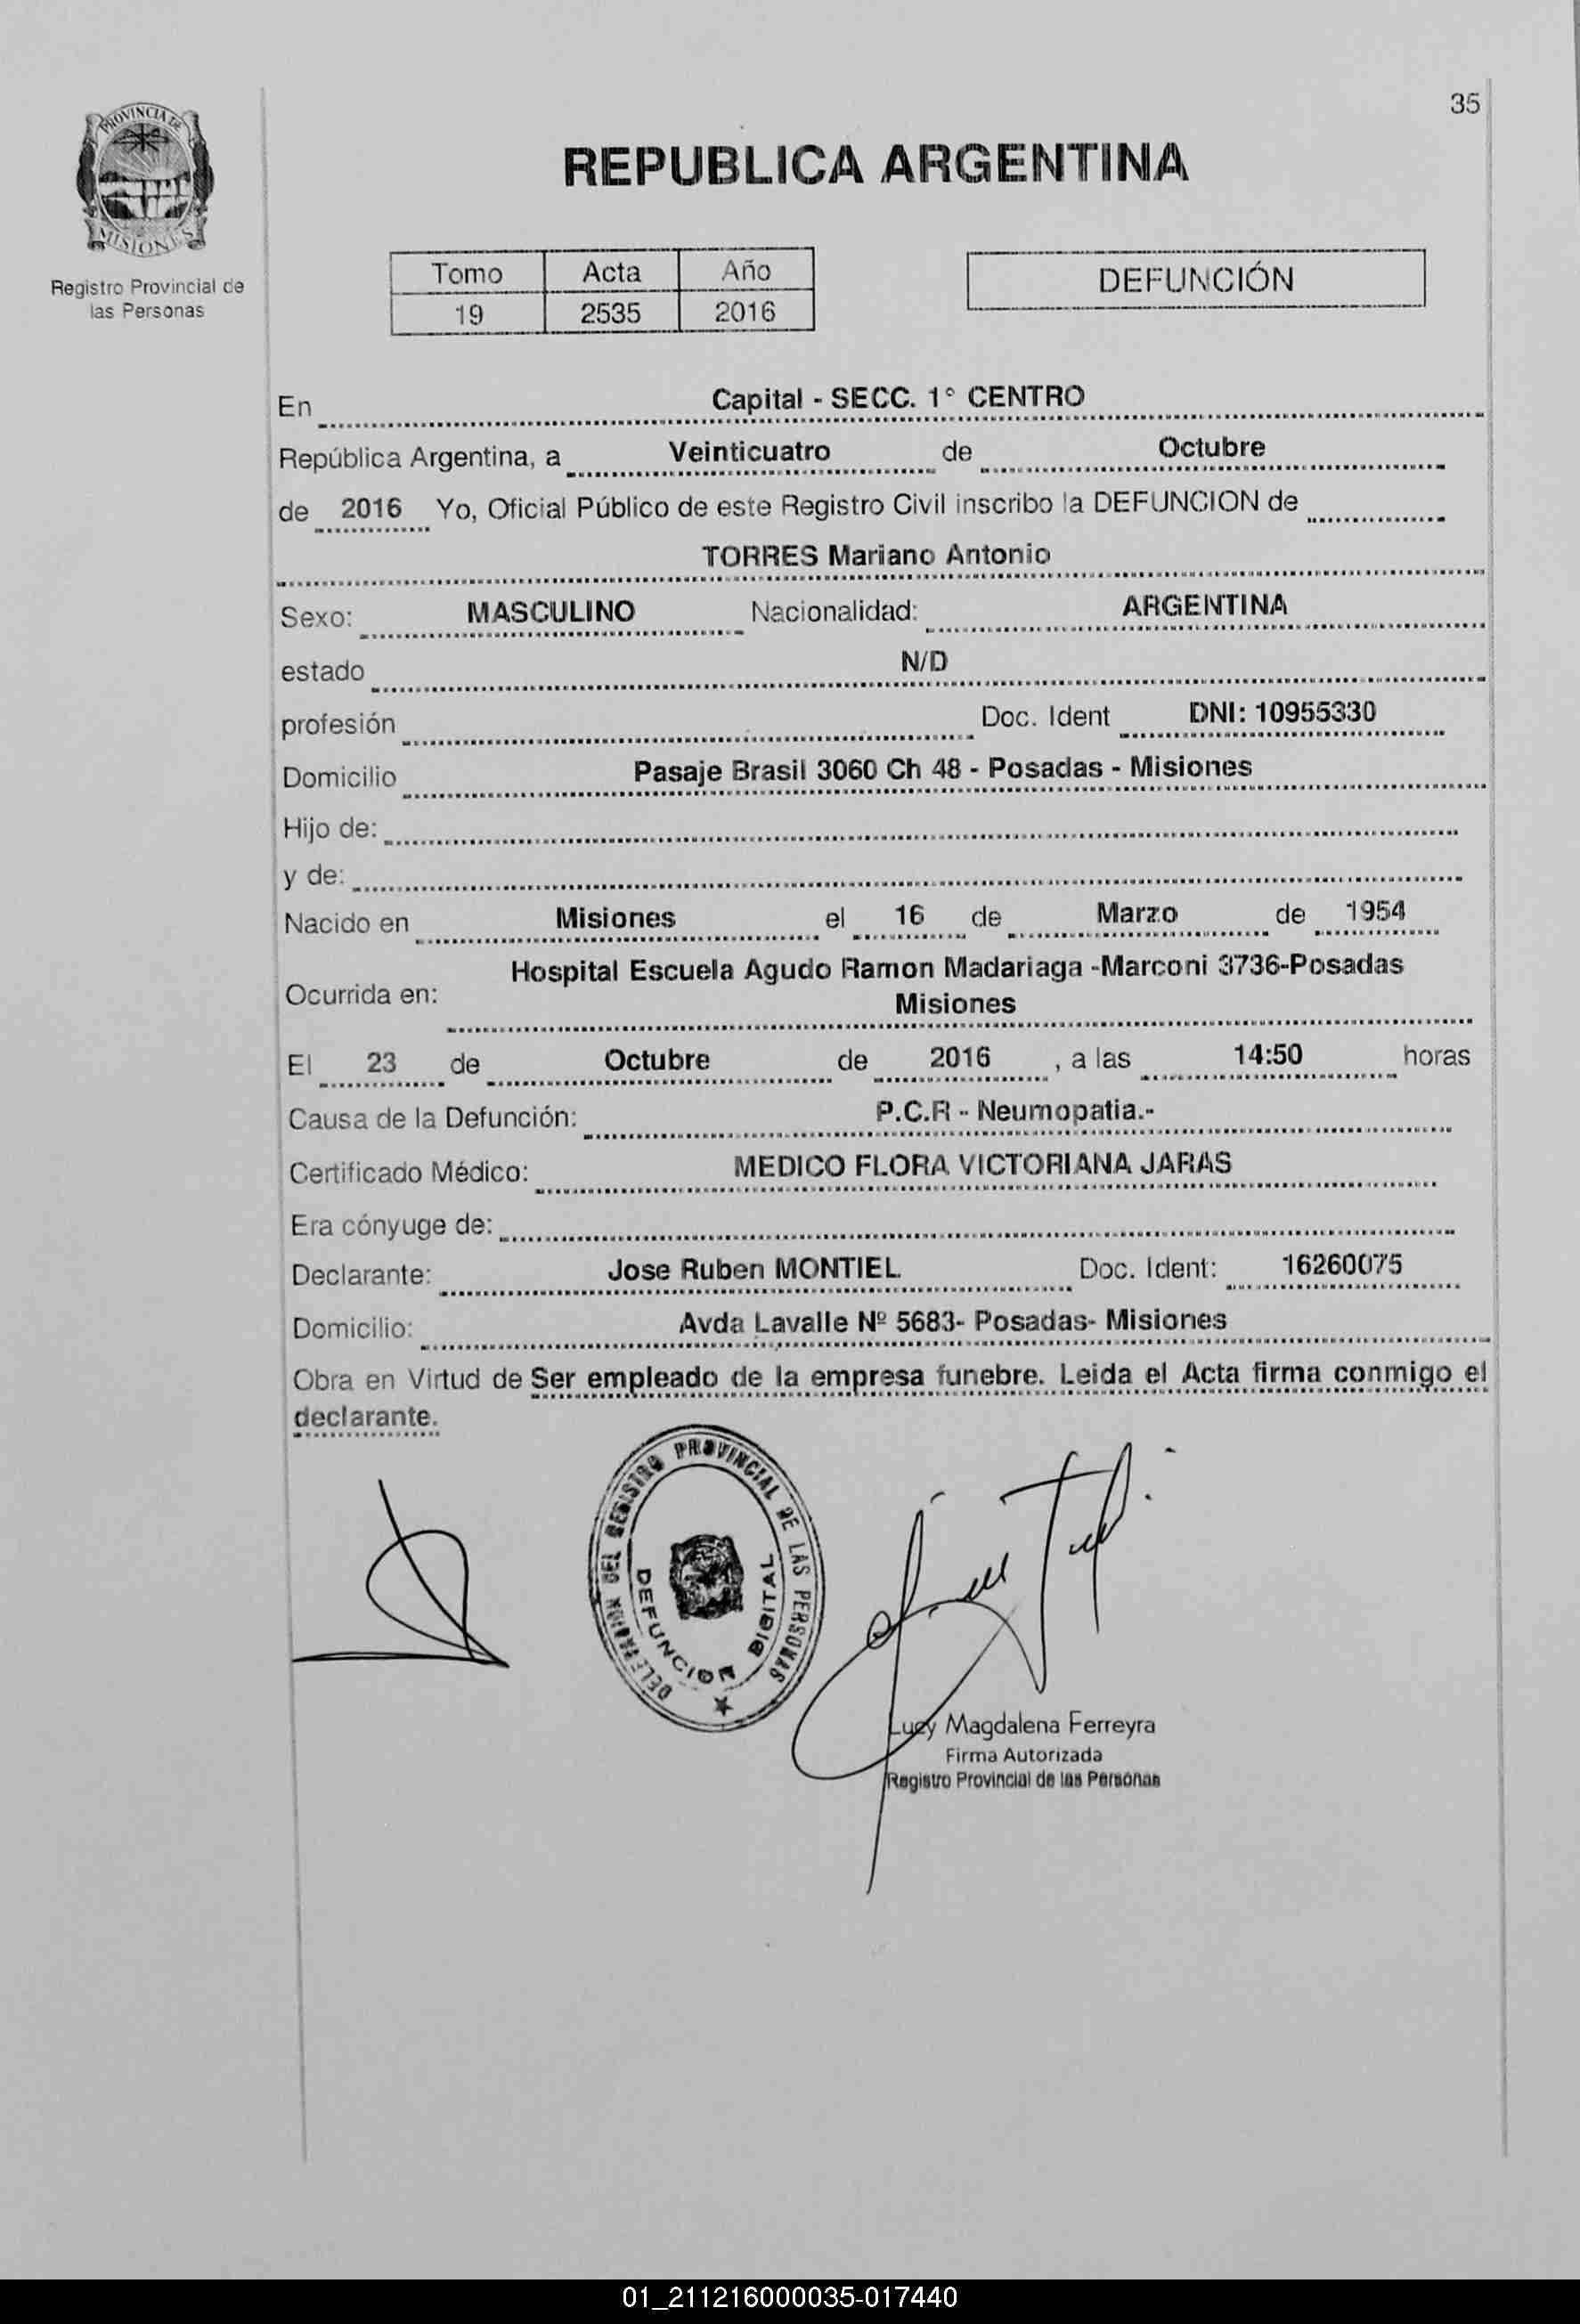 35
PROVINCIA DE
MISIONES
Registro Provincial de
las Personas
REPUBLICA ARGENTINA
Tomo Acta Año
19 2535 2016
DEFUNCIÓN
En Capital - SECC. 1° CENTRO
República Argentina, a Veinticuatro de Octubre
de 2016 Yo, Oficial Público de este Registro Civil inscribo la DEFUNCION de
TORRES Mariano Antonio
Sexo: MASCULINO Nacionalidad: ARGENTINA
estado N/D
profesión Doc. Ident DNI: 10955330
Domicilio Pasaje Brasil 3060 Ch 48 - Posadas - Misiones
Hijo de:
y de:
Nacido en Misiones el 16 de Marzo de 1954
Hospital Escuela Agudo Ramon Madariaga -Marconi 3736-Posadas
Ocurrida en: Misiones
El 23 de Octubre de 2016 , a las 14:50 horas
Causa de la Defunción: P.C.R - Neumopatia.-
Certificado Médico: MEDICO FLORA VICTORIANA JARAS
Era cónyuge de:
Declarante: Jose Ruben MONTIEL Doc. Ident: 16260075
Domicilio: Avda Lavalle Nº 5683- Posadas- Misiones
Obra en Virtud de Ser empleado de la empresa funebre. Leida el Acta firma conmigo el
declarante.
DELEGACION DEL REGISTRO PROVINCIAL DE LAS PERSONAS
DEFUNCION DIGITAL
Lucy Magdalena Ferreyra
Firma Autorizada
Registro Provincial de las Personas
01_211216000035-017440